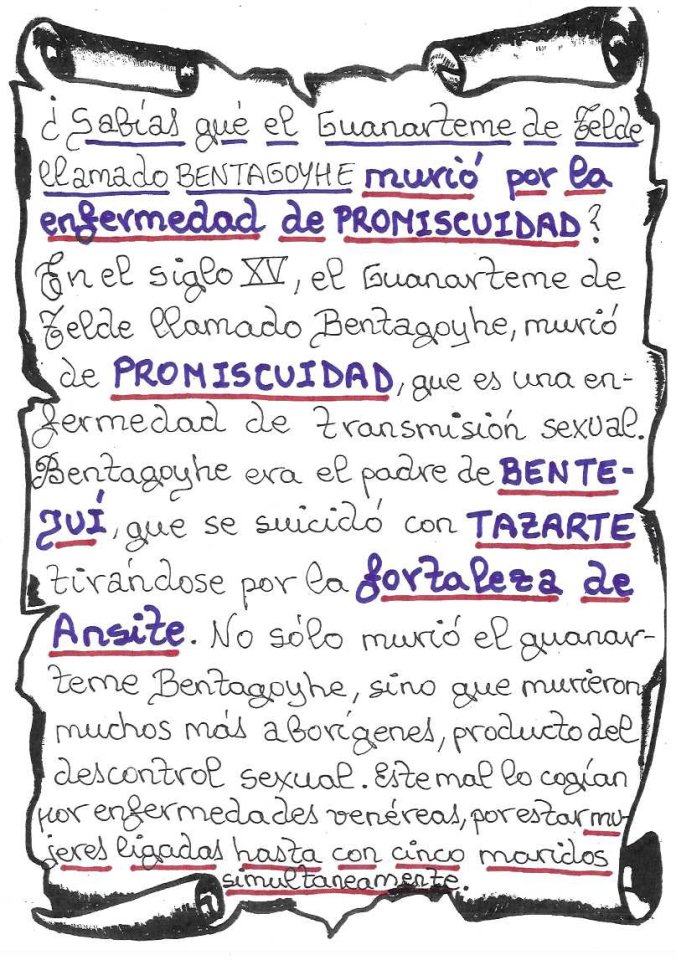 ¿Sabías qué el Guanarteme de Telde
llamado BENTAGOYHE murió por la
enfermedad de PROMISCUIDAD?
En el siglo XV, el Guanarteme de
Telde llamado Bentagoyhe, murió
de PROMISCUIDAD, que es una en-
fermedad de transmisión sexual.
Bentagoyhe era el padre de BENTE-
JUÍ, que se suicidó con TAZARTE
tirándose por la fortaleza de
Ansite. No sólo murió el guanar-
teme Bentagoyhe, sino que murieron
muchos más aborígenes, producto del
descontrol sexual. Este mal lo cogían
por enfermedades venéreas, por estar mu-
jeres ligadas hasta con cinco maridos
simultaneamente.